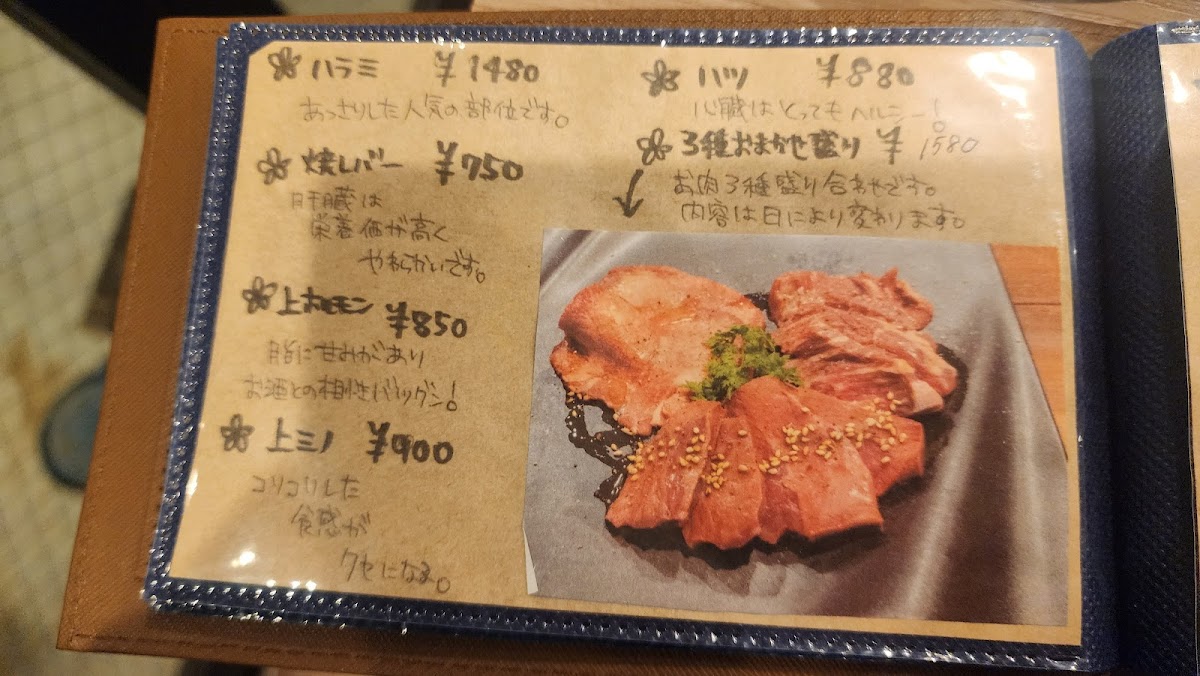 ハラミ ¥1480
あっさりした人気の部位です。
焼レバー ¥750
肝臓は
栄養価が高く
やわらかいです。
上ホルモン ¥850
脂に甘みがあり
お酒との相性バツグン!
上ミノ ¥900
コリコリした
食感が
クセになる。
ハツ ¥880
心臓はとってもヘルシー!
3種おまかせ盛り ¥1580
お肉3種盛り合わせです。
内容は日により変わります。